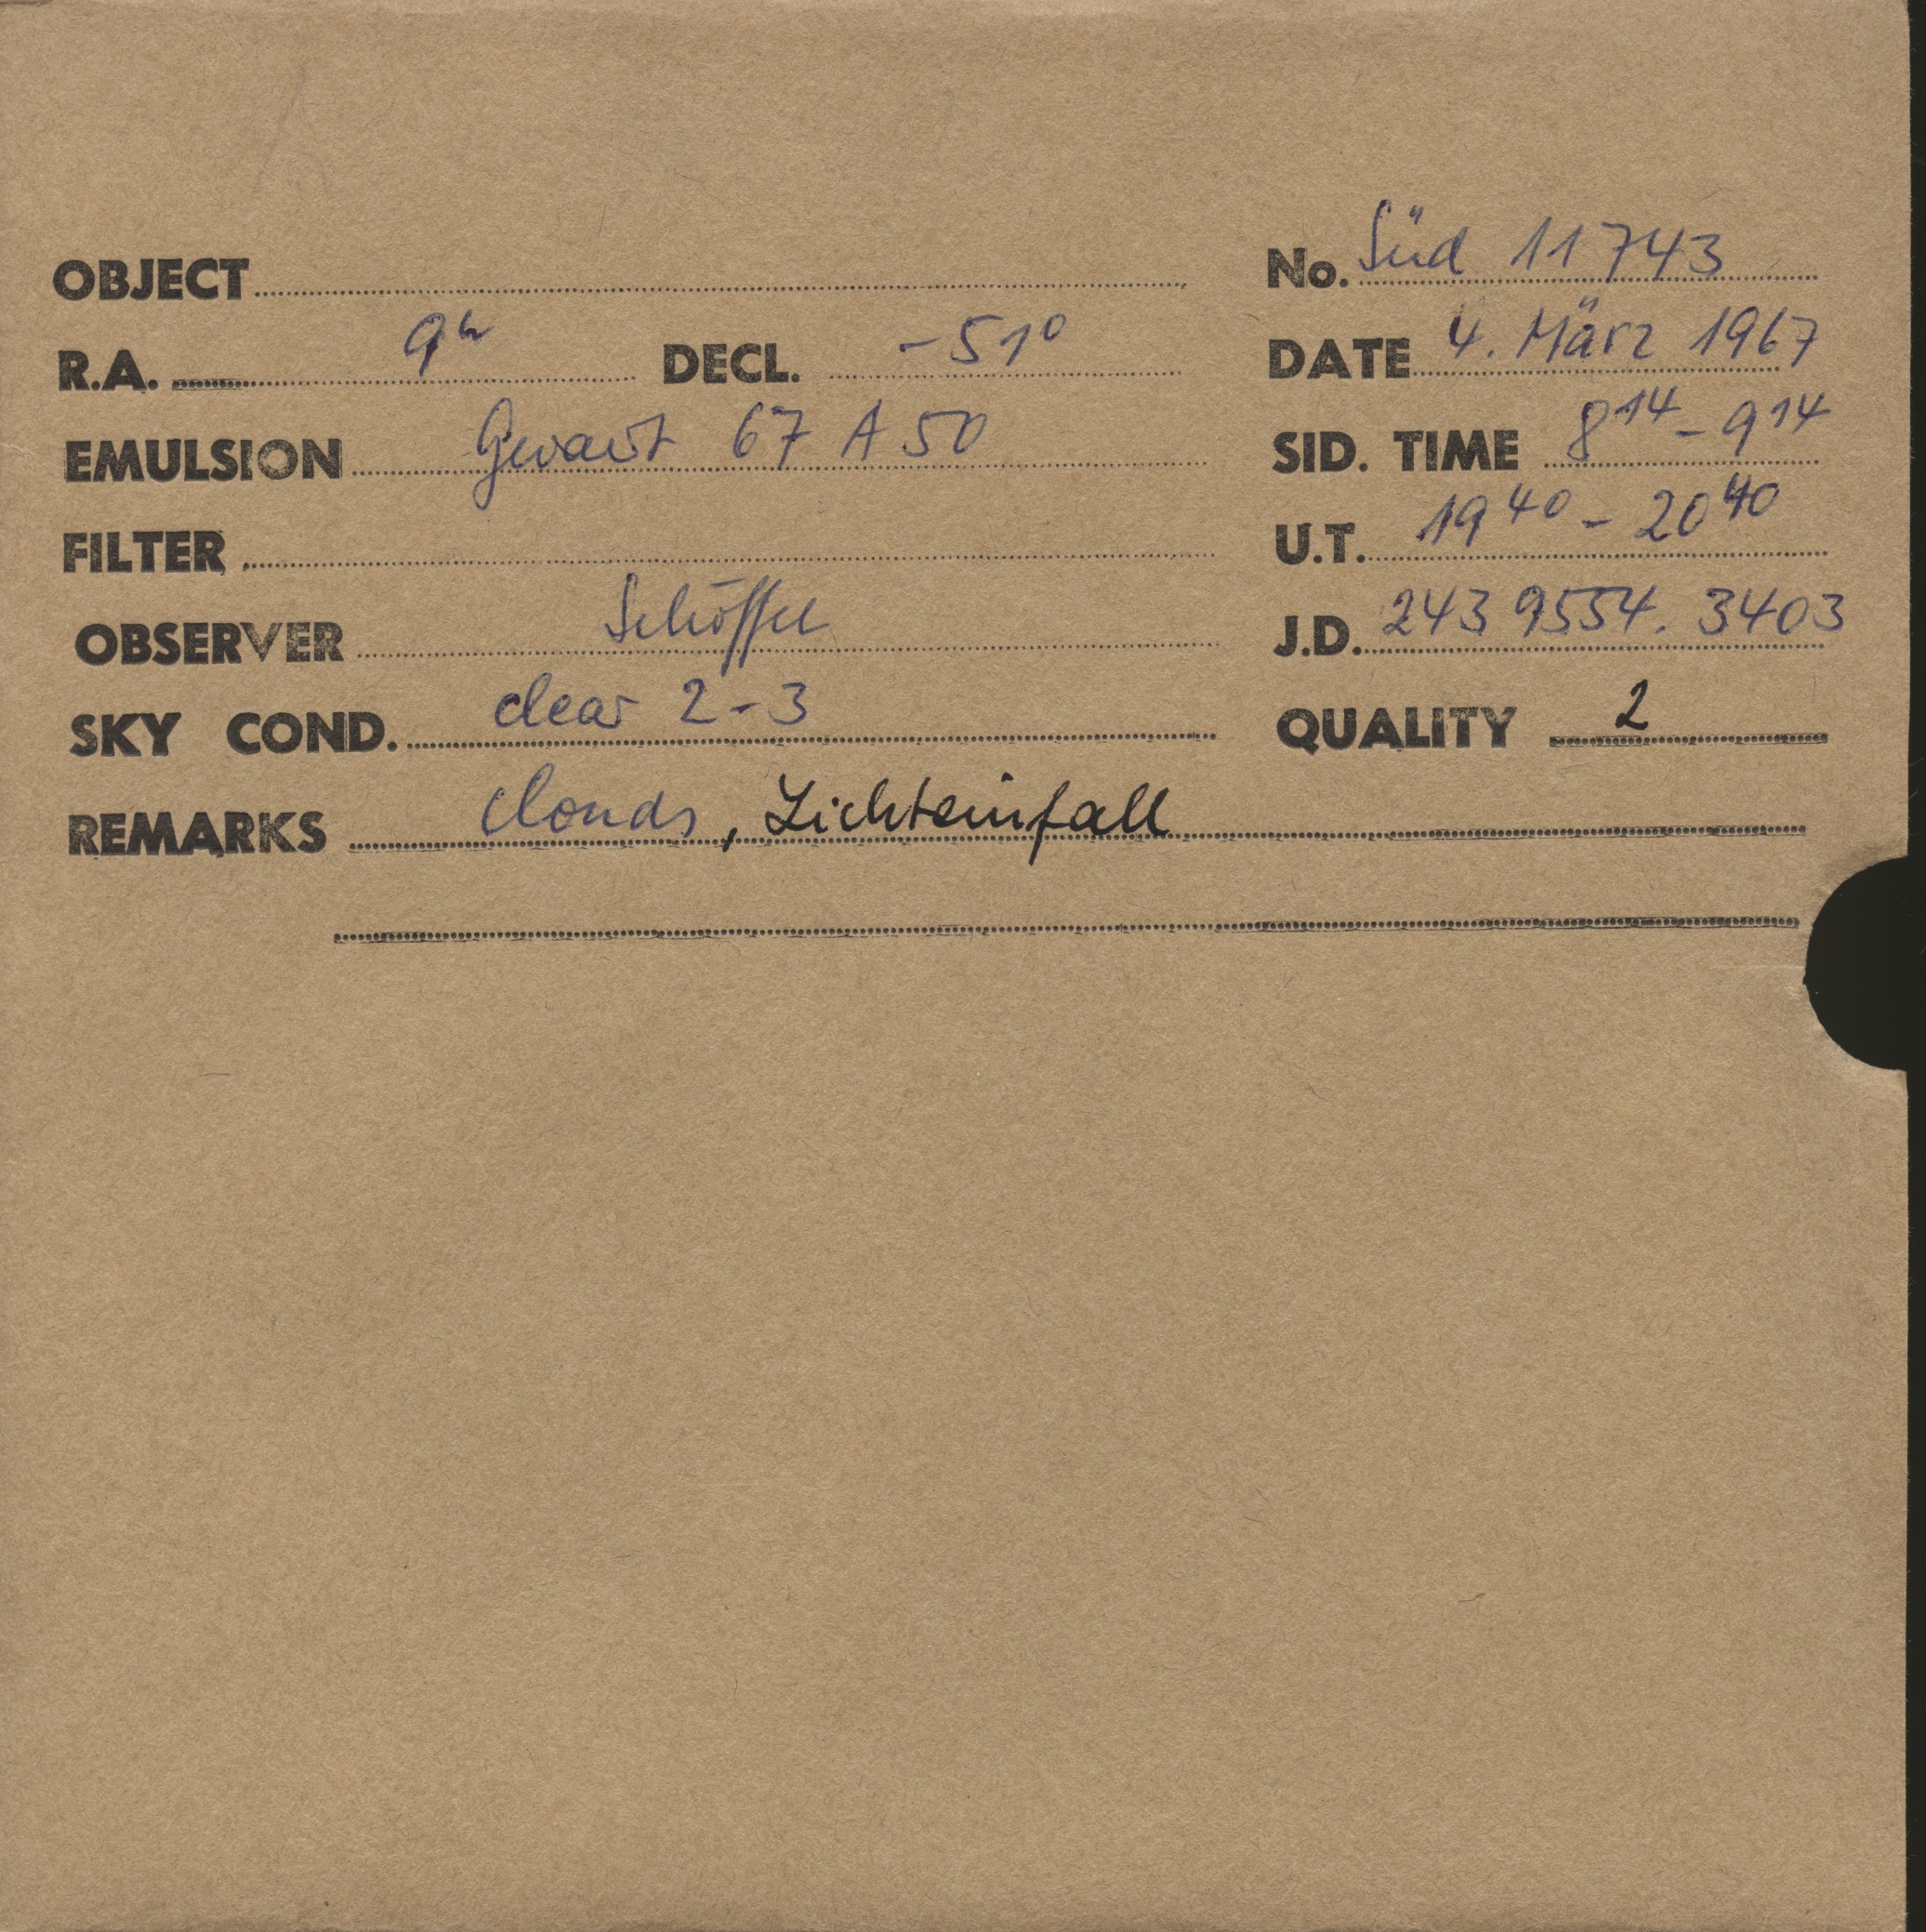 OBJECT No. Süd 11743
R.A. 9h DECL. -51°
DATE 4. März 1967
EMULSION Gevaert 67 A 50
SID. TIME 8 14 - 9 14
FILTER
U.T. 19 40 - 20 40
OBSERVER Schöffel
J.D. 243 9554. 3403
SKY COND. clear 2-3
QUALITY 2
REMARKS clouds, Lichteinfall